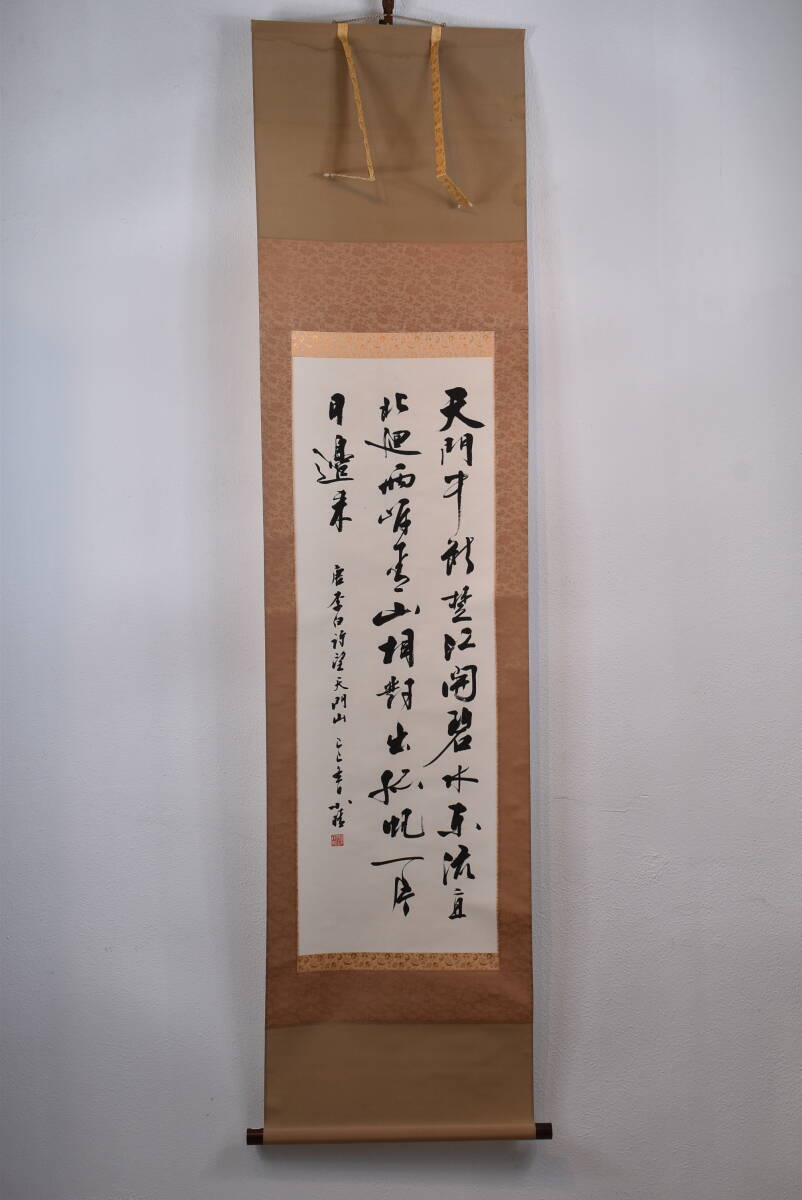 天門中断楚江開碧水東流直
北廻両岸青山相對出孤帆一片
日邊来
唐李白詩望天門山 乙巳春日